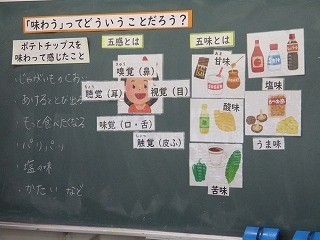 「味わう」ってどういうことだろう？
ポテトチップスを
味わって感じたこと
・じゃがいものにおい
・あけるとひ出る
・もっと食べたくなる
・パリパリ
・塩の味
・かたい など
五感とは
嗅覚（鼻）
聴覚（耳）
視覚（目）
味覚（口・舌）
触覚（皮ふ）
五味とは
甘味
酸味
苦味
塩味
うま味